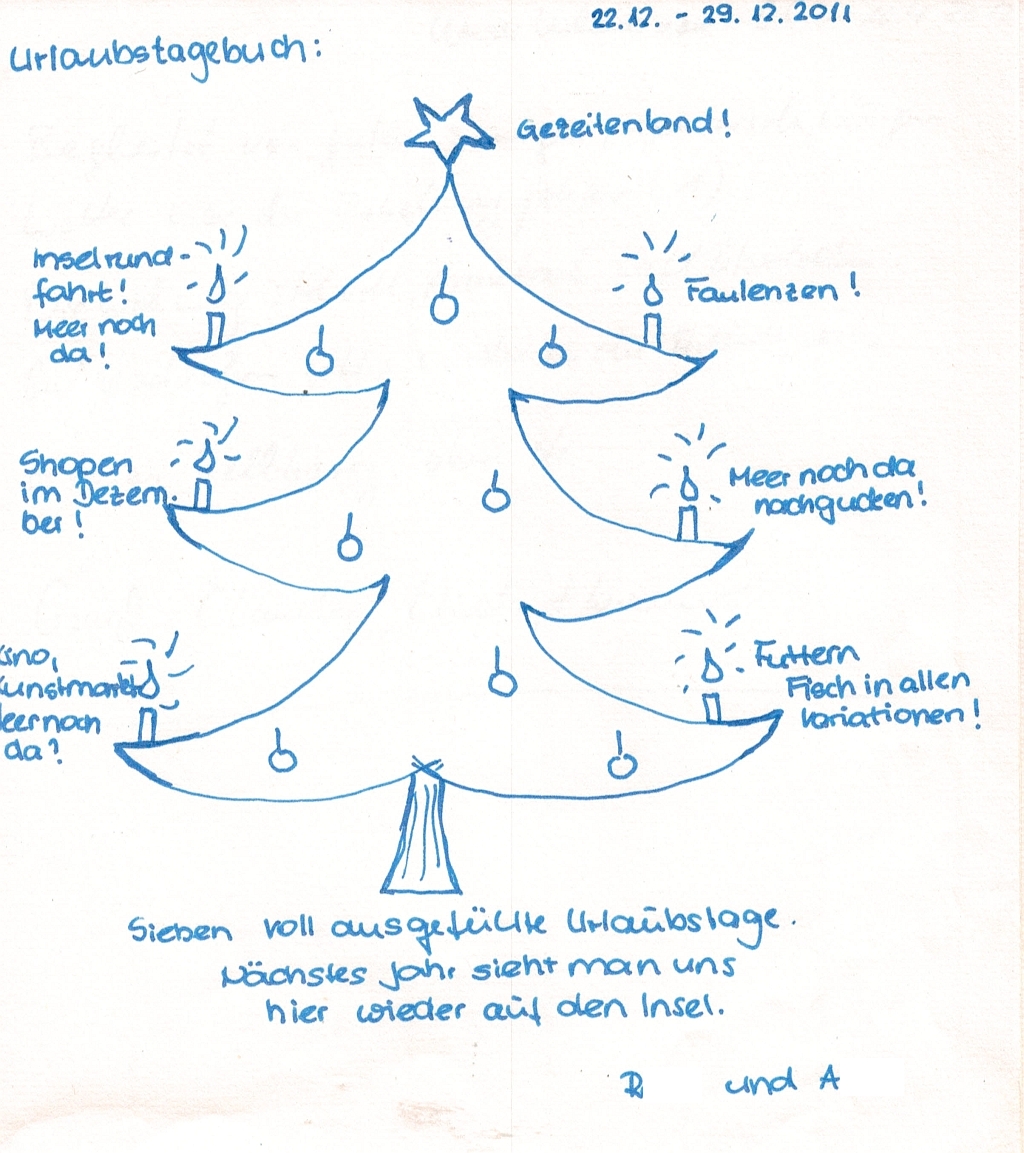 22.12. - 29.12.2011
Urlaubstagebuch:
Gezeitenland!
Inselrund-
fahrt!
Meer noch
da!
Faulenzen!
Shopen
im Dezem.
ber!
Meer noch da
nachgucken!
Kino,
Kunstmarkt
Meer noch
da?
Futtern
Fisch in allen
Variationen!
Sieben voll ausgefüllte Urlaubstage.
Nächstes Jahr sieht man uns
hier wieder auf den Insel.
R und A